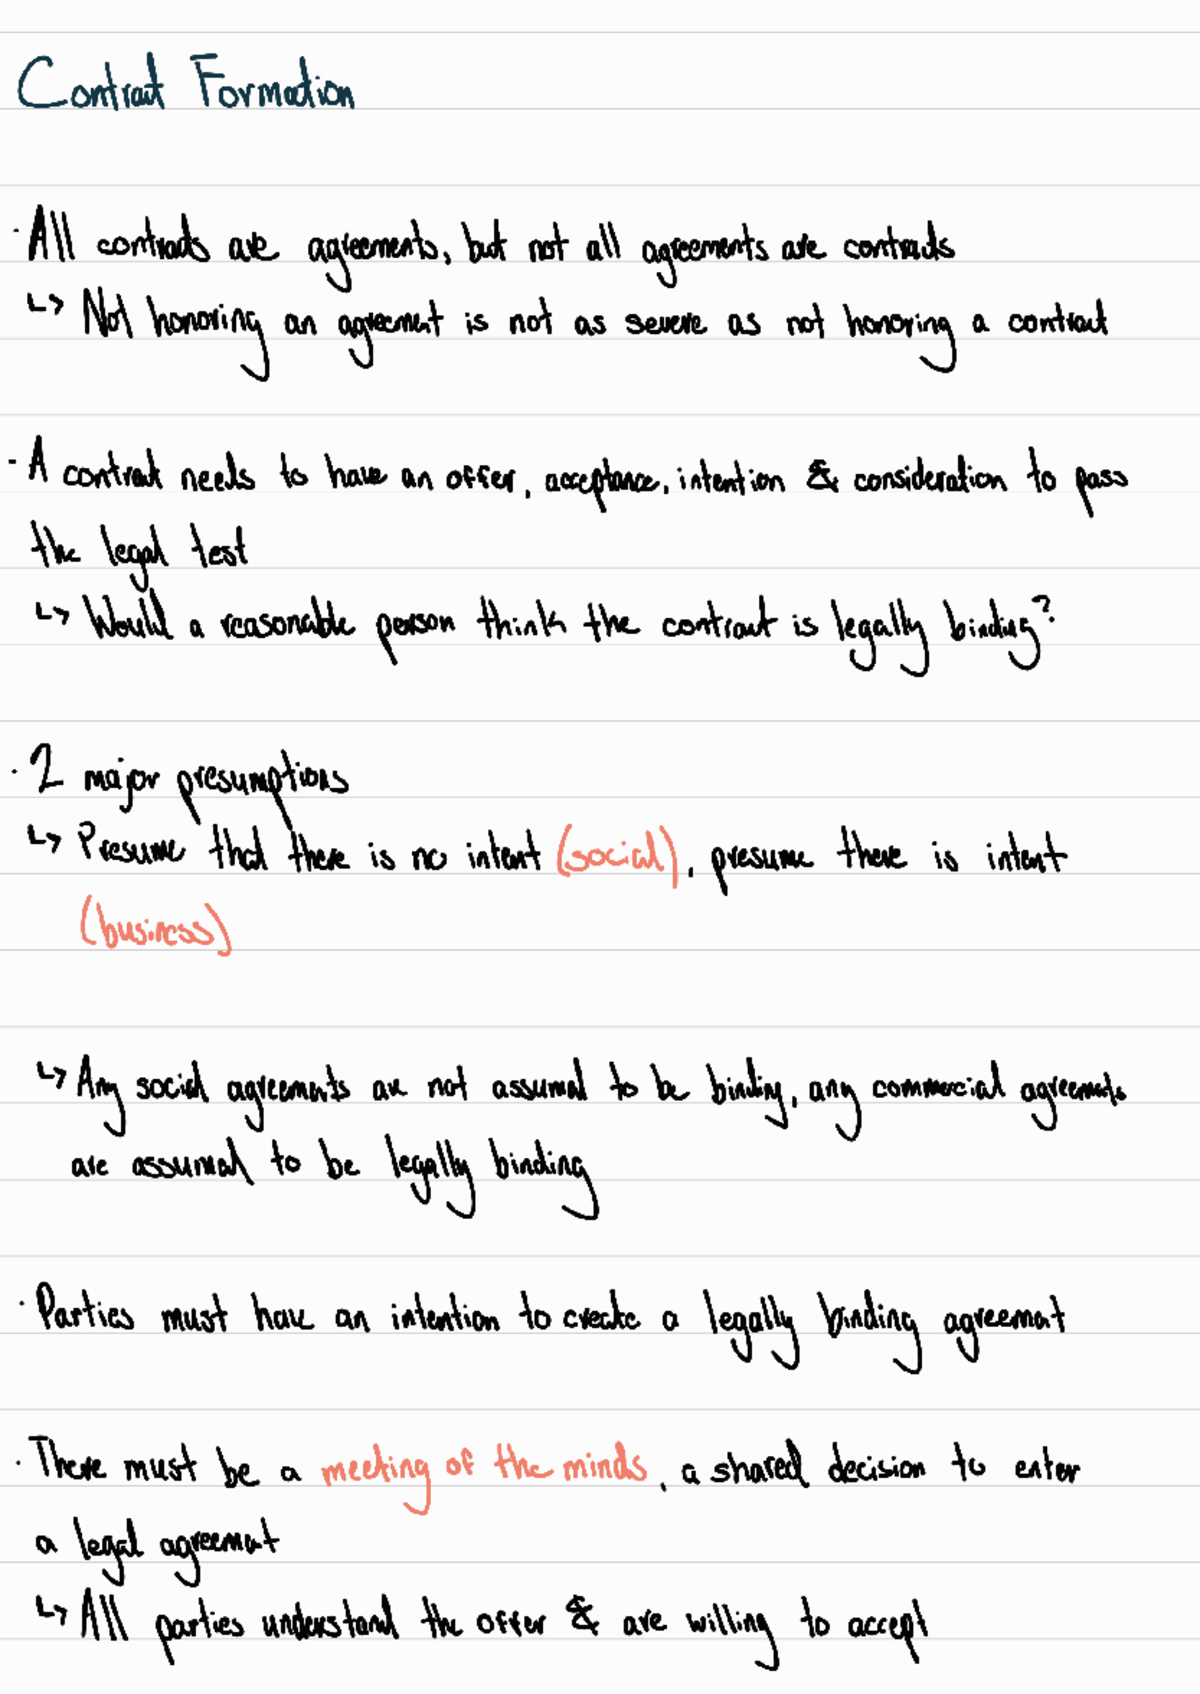 Contract Formation
· All contracts are agreements, but not all agreements are contracts
↳ Not honoring an agreement is not as severe as not honoring a contract
· A contract needs to have an offer, acceptance, intention & consideration to pass
the legal test
↳ Would a reasonable person think the contract is legally binding?
· 2 major presumptions
↳ Presume that there is no intent (social), presume there is intent
(business)
↳ Any social agreements are not assumed to be binding, any commercial agreements
are assumed to be legally binding
· Parties must have an intention to create a legally binding agreement
· There must be a meeting of the minds, a shared decision to enter
a legal agreement
↳ All parties understand the offer & are willing to accept